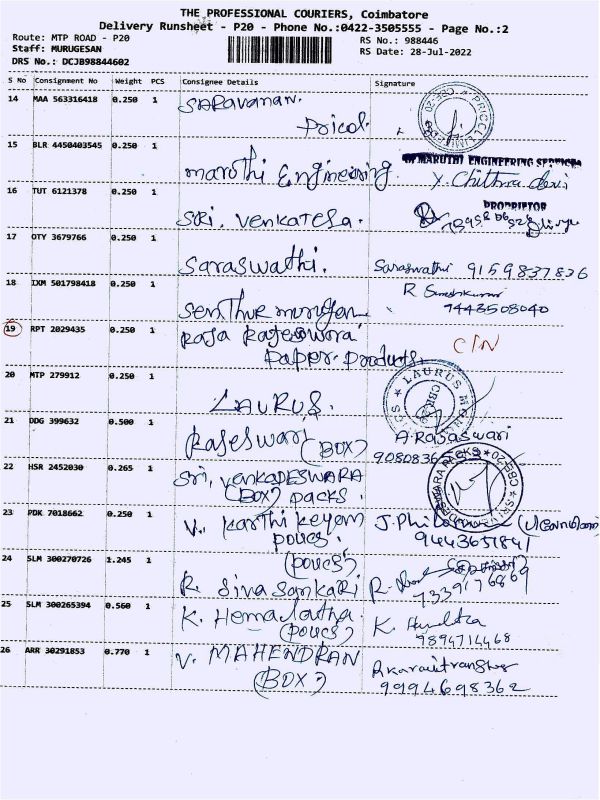 THE PROFESSIONAL COURIERS, Coimbatore
Delivery Runsheet - P20 - Phone No.:0422-3505555 - Page No.:2
Route: MTP ROAD - P20
RS No.: 988446
Staff: MURUGESAN
RS Date: 28-Jul-2022
DRS No.: DCJB98844602
S No Consignment No Weight PCS Consignee Details Signature
14 MAA 563316418 0.250 1 Saravanan.
Pricol.
15 BLR 4450403545 0.250 1 Maruthi Engineering.
MARUTHI ENGINEERING SERVICES
Y. Chithra devi
PROPRIETOR
16 TUT 6121378 0.250 1 Sri. Venkatesa.
17 OTY 3679766 0.250 1 Saraswathi.
Saraswathi 9159837836
18 IXM 501798418 0.250 1 Senthur murugan
9443508040
19 RPT 2029435 0.250 1 Raja Rajeswara
Paper Products.
C/N
20 MTP 279912 0.250 1 LAURUS.
LAURUS
21 DDG 399632 0.500 1 Rajeswari (BOX)
A. Rajaswari
22 HSR 2452030 0.265 1 Sri, VENKADESWARA
(BOX) packs.
23 PDK 7018662 0.250 1 V. Karthikeyam
poucs.
9443651841
24 SLM 300270726 1.245 1 (poucs)
R. Sivasankari
7339176869
25 SLM 300265394 0.560 1 K. Hemalatha.
(poucs)
9894714468
26 ARR 30291853 0.770 1 V. MAHENDRAN
(BOX)
9994698362